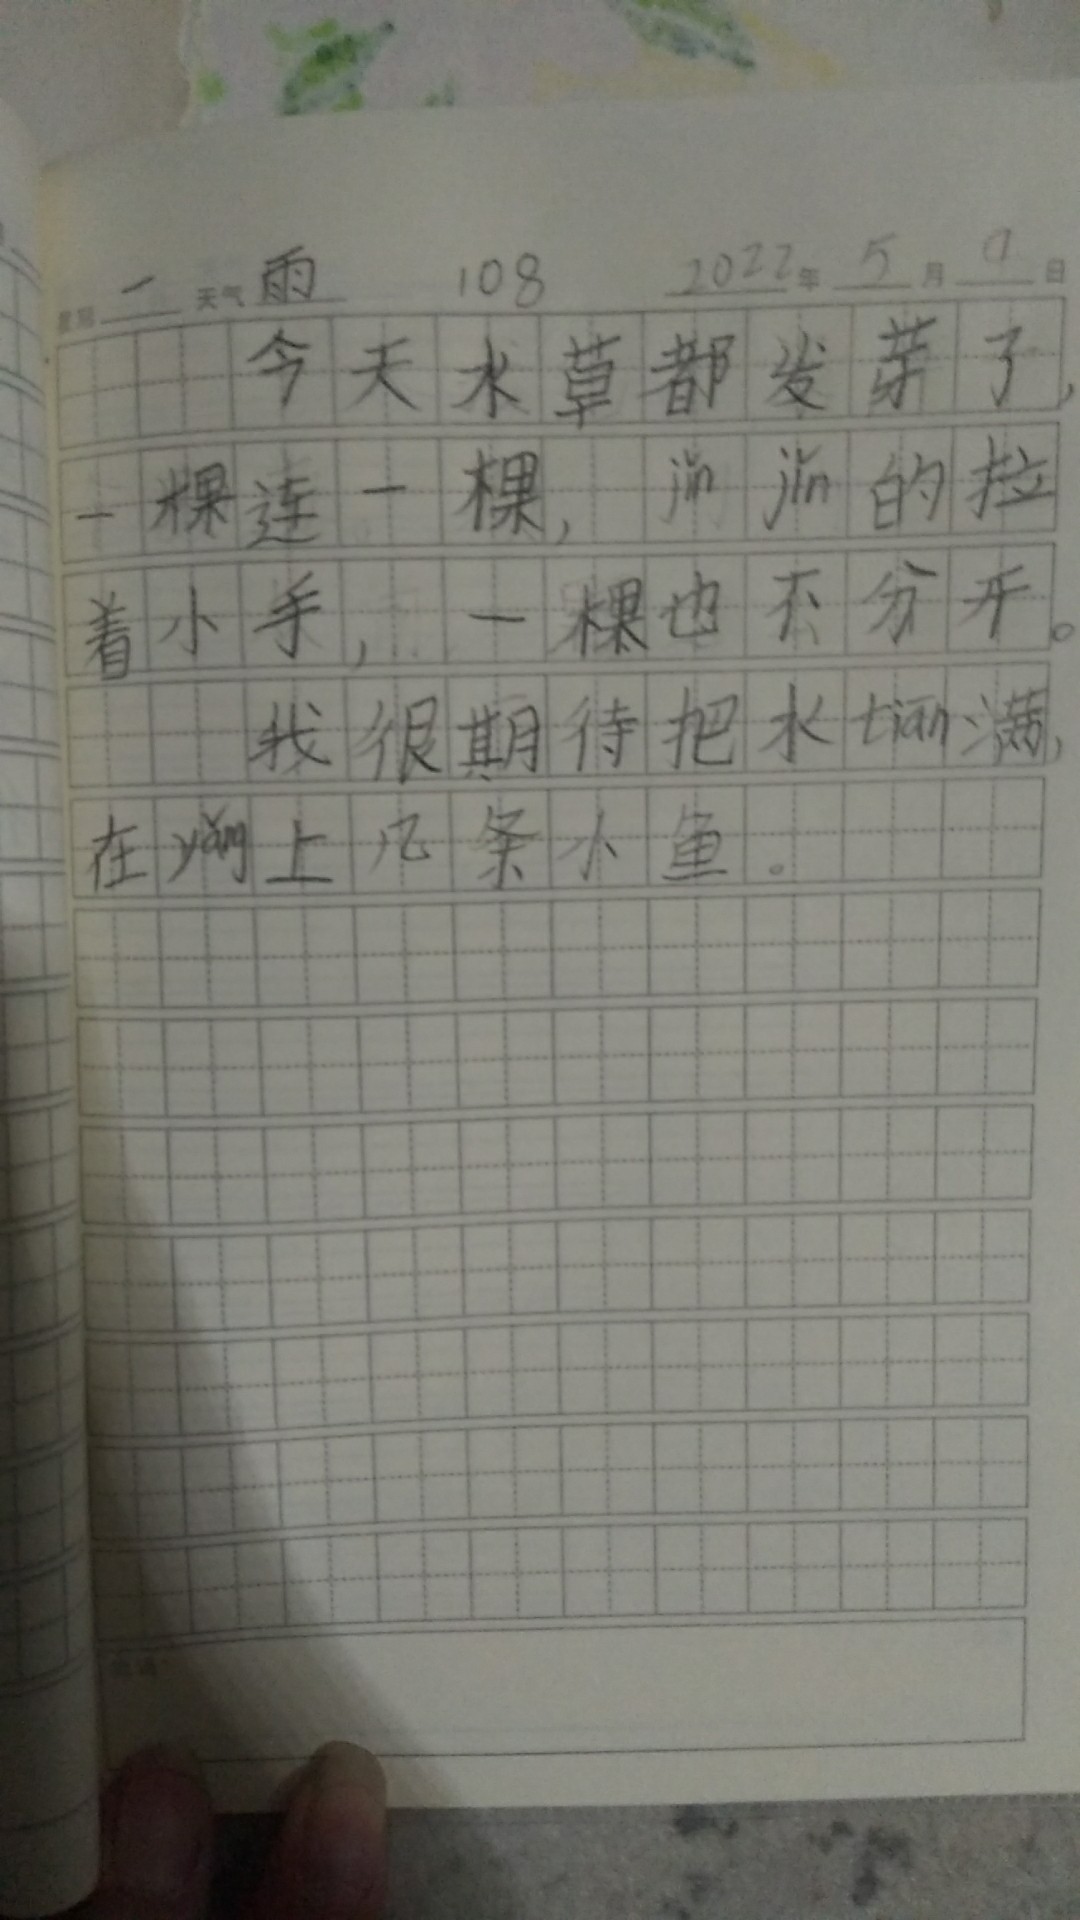 星期 一 天气 雨 108 2022年 5月 9日
今天水草都发芽了，
一棵连一棵，jǐn jǐn的拉
着小手，一棵也不分开。
我很期待把水tián满，
在yǎng上几条小鱼。